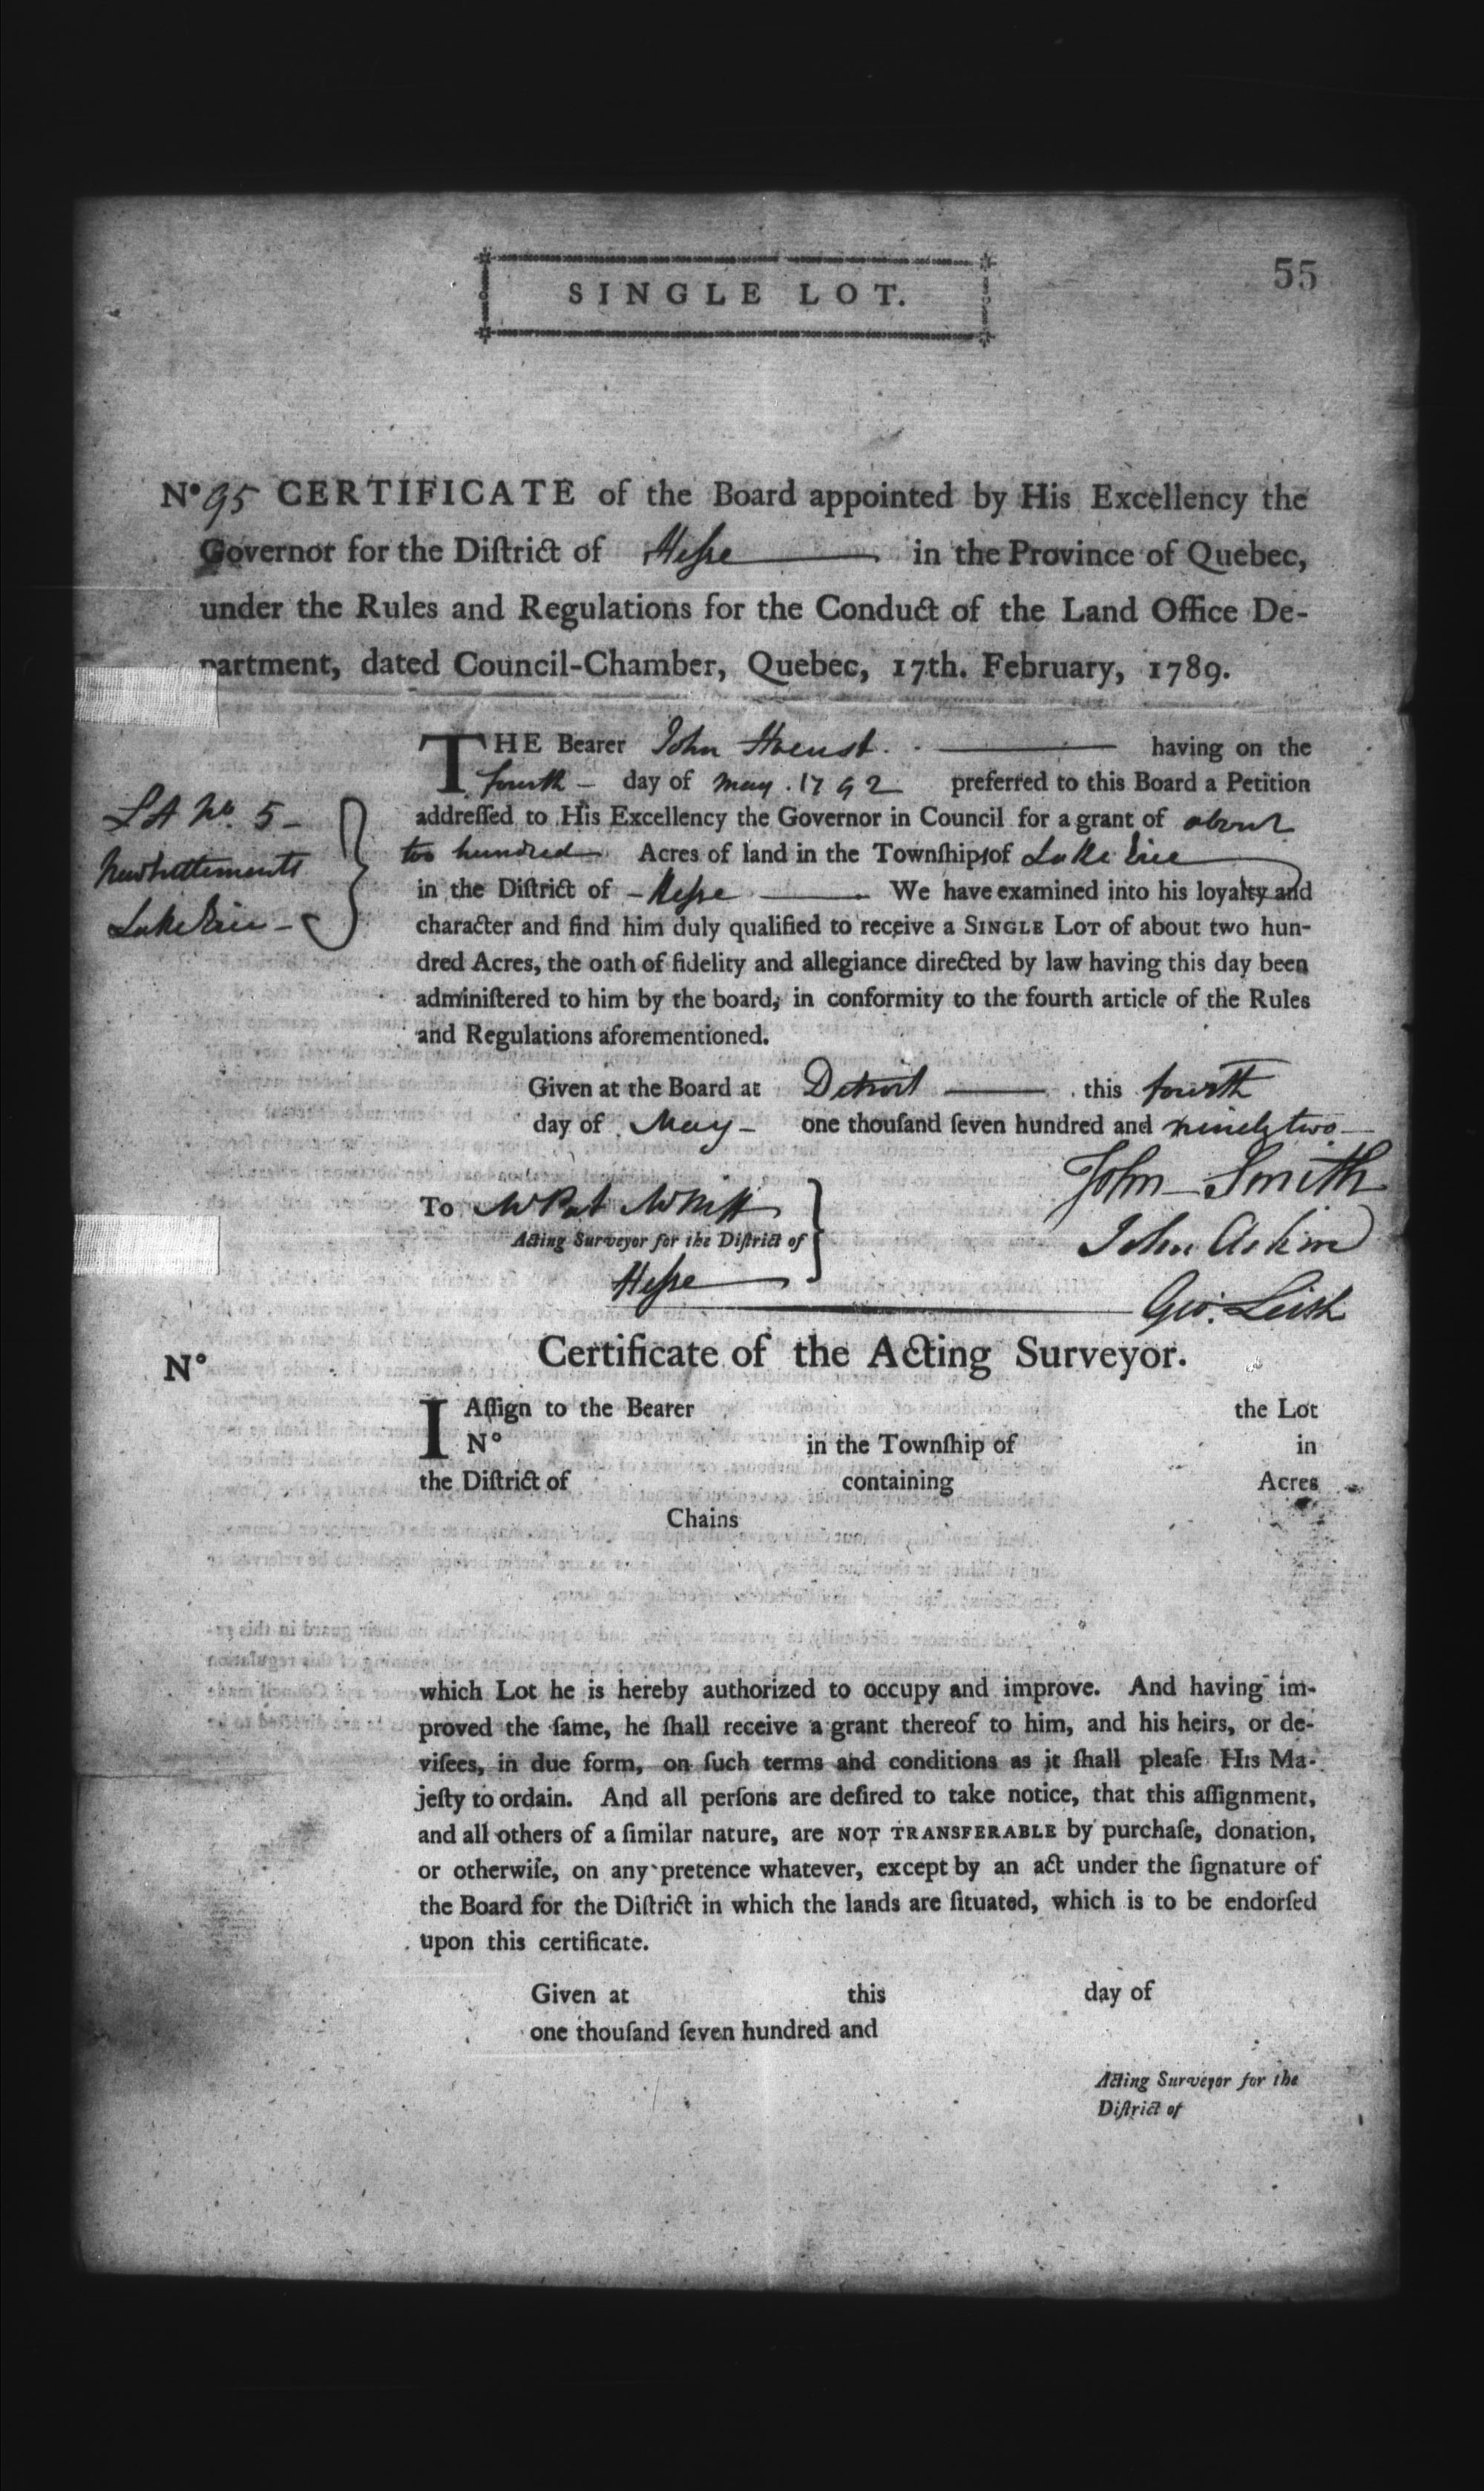 55
SINGLE LOT.
N° 95 CERTIFICATE of the Board appointed by His Excellency the
Governor for the Diſtrict of Heſse in the Province of Quebec,
under the Rules and Regulations for the Conduct of the Land Office De-
partment, dated Council-Chamber, Quebec, 17th. February, 1789.
THE Bearer John having on the
fourth – day of May . 1792 preferred to this Board a Petition
addreſſed to His Excellency the Governor in Council for a grant of about
two hundred Acres of land in the Townſhip of Lake Erie
in the Diſtrict of – Heſse We have examined into his loyalty and
character and find him duly qualified to receive a SINGLE LOT of about two hun-
dred Acres, the oath of fidelity and allegiance directed by law having this day been
adminiſtered to him by the board, in conformity to the fourth article of the Rules
and Regulations aforementioned.
Lot No. 5 –
New Settlements
Lake Erie –
Given at the Board at Detroit this fourth
day of May – one thouſand ſeven hundred and ninety two
John Smith
John Askin
Geo. Leith
To
Acting Surveyor for the Diſtrict of
Heſse
N°
Certificate of the Acting Surveyor.
I Aſſign to the Bearer the Lot
N° in the Townſhip of in
the Diſtrict of containing Acres
Chains
which Lot he is hereby authorized to occupy and improve. And having im-
proved the ſame, he ſhall receive a grant thereof to him, and his heirs, or de-
viſees, in due form, on ſuch terms and conditions as it ſhall pleaſe HIS MA-
jeſty to ordain. And all perſons are deſired to take notice, that this aſſignment,
and all others of a ſimilar nature, are NOT TRANSFERABLE by purchaſe, donation,
or otherwiſe, on any pretence whatever, except by an act under the ſignature of
the Board for the Diſtrict in which the lands are ſituated, which is to be endorſed
upon this certificate.
Given at this day of
one thouſand ſeven hundred and
Acting Surveyor for the
Diſtrict of